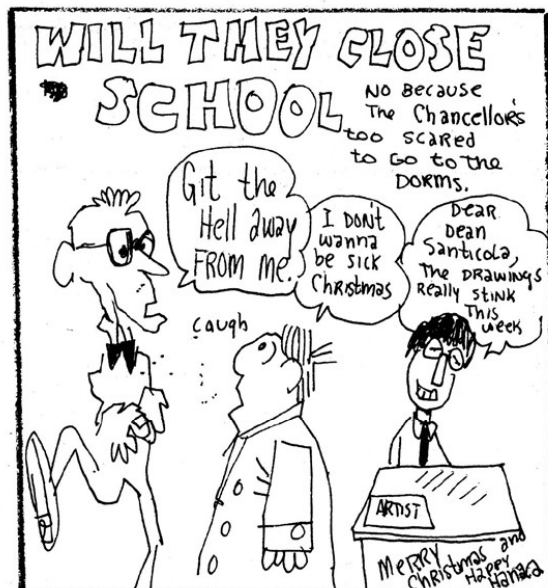 WILL THEY CLOSE
SCHOOL
NO BECAUSE
The Chancellor's
too scared
to Go to the
DORMS.
Git the
Hell away
FROM me.
I DON'T
wanna
be sick
Christmas
Dear
Dean
Santicola,
The DRAWINGS
Really Stink
This
week
caugh
ARTIST
MERRY
Christmas and
Happy
Hanaca